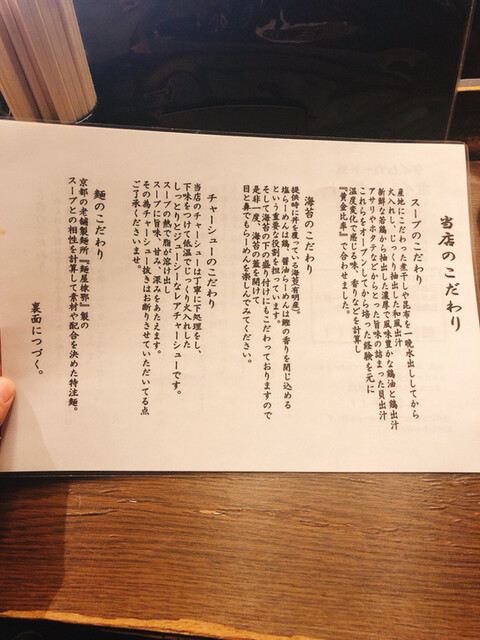 当店のこだわり
スープのこだわり
産地にこだわった煮干しや昆布を一晩水出ししてから
火入れしじっくり抽出した和風出汁
新鮮な若鶏から抽出した濃厚で風味豊かな鶏油と鶏出汁
アサリやホタテなどからとった旨味の詰まった貝出汁
これらをオープンしてから培った経験を元に
温度変化で感じる味、香りなどを計算し
『黄金比率』で合わせました。
海苔のこだわり
提供時に丼を覆っている海苔『有明産』。
塩らーめんは鶏、醤油らーめんは鰹の香りを閉じ込める
という重要な役割を担っています。
そして海苔の下の盛り付けにもこだわっておりますので
是非一度、海苔の蓋を開けて
目と鼻でもらーめんを楽しんでみてください。
チャーシューのこだわり
当店のチャーシューは丁寧に下処理をし、
下味をつけて低温でじっくり火入れした
しっとりとジューシーなレアチャーシューです。
スープの熱で脂が溶け出し
スープに旨味、甘み、深みをあたえます。
その為チャーシュー抜きはお断りさせていただいてる点
ご了承くださいませ。
麺のこだわり
京都の老舗製麺所『麺屋棣鄂』製の
スープとの相性を計算して素材や配合を決めた特注麺。
裏面につづく。